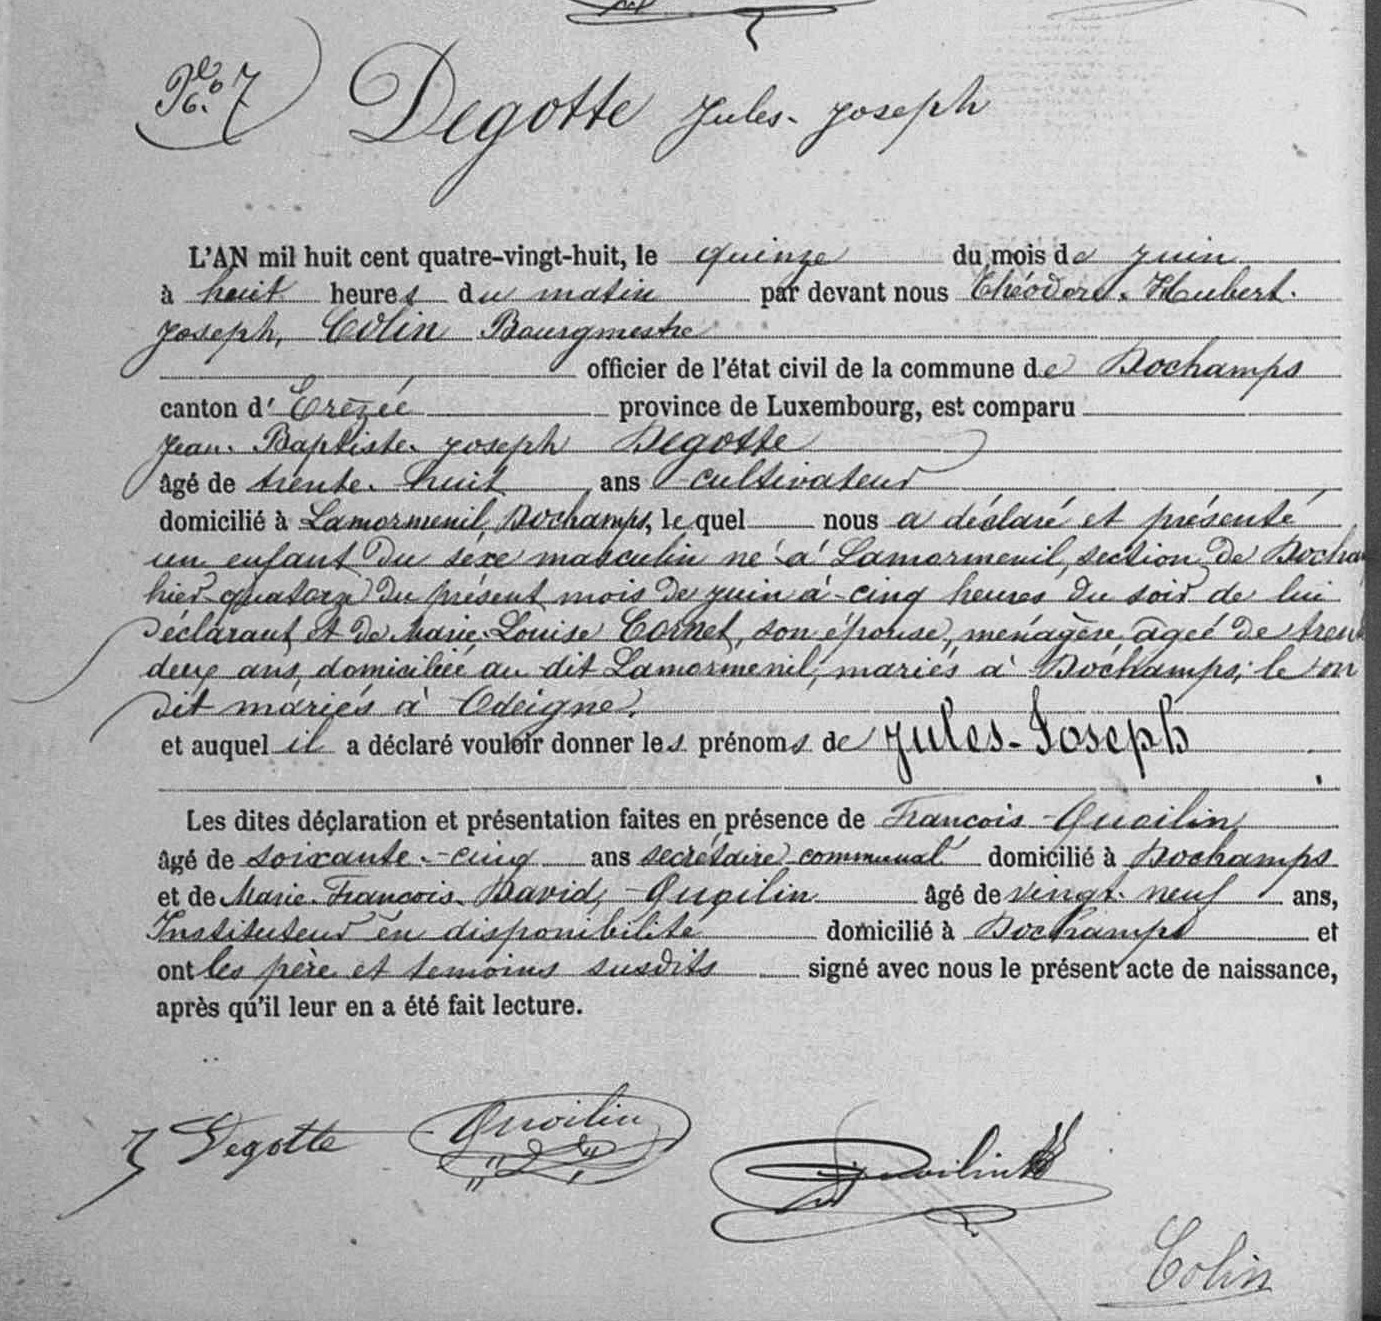 No. 7 Degotte Jules-Joseph
L'AN mil huit cent quatre-vingt-huit, le quinze du mois de juin
à huit heures du matin par devant nous Théodore-Hubert-
Joseph, Colin Bourgmestre
officier de l'état civil de la commune de Dochamps
canton d'Erezée province de Luxembourg, est comparu
Jean-Baptiste-Joseph Degotte
âgé de trente-huit ans cultivateur
domicilié à Lamormenil, Dochamps, lequel nous a déclaré et présenté
un enfant du séxe masculin né à Lamormenil, section de Docha
hier quatorze du présent mois de juin à cinq heures du soir de lui
déclarant et de Marie-Louise Cornet, son épouse, menágère ágeé de trent
deux ans, domiciliée au dit Lamormenil, mariés à Dochamps; le
dit mariés à Odeigne.
et auquel il a déclaré vouloir donner les prénoms de Jules-Joseph
Les dites déclaration et présentation faites en présence de Francois Quoilin
âgé de soixante-cinq ans secrétaire communal domicilié à Dochamps
et de Marie-Francois-David, Quoilin âgé de vingt-neuf ans,
Instituteur en disponibilité domicilié à Dochamps et
ont les père et temoins susdits signé avec nous le présent acte de naissance,
après qu'il leur en a été fait lecture.
J Degotte Quoilin Quoilin
Colin